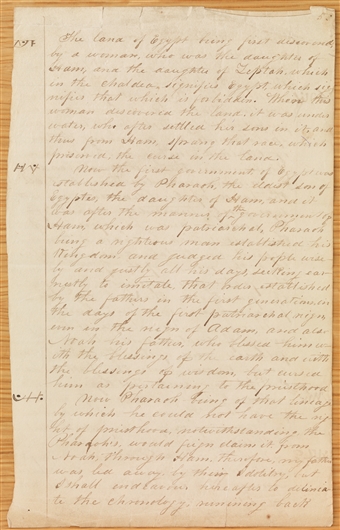 The land of Egypt being first discovered
by a woman, who was the daughter of
Ham, and the daughter of Zeptah, which
in the Chaldea, signifies Egypt, which sig-
nifies that which is forbidden. When this
woman discovered the land, it was under
water, who after settled her sons in it, and
thus from Ham, sprang that race, which
preserved, the curse in the land.
Now the first government of Egypt was
established by Pharaoh, the eldest son of
Egyptes, the daughter of Ham, and it
was after the manner of the government of
Ham, which was patriarchal, Pharaoh
being a righteous man established his
Kingdom, and judged his people wise
ly and justly all his days, seeking ear
nestly to imitate that order established
by the fathers in the first generations, in
the days of the first patriarchal reign
even in the reign of Adam, and also
Noah his father, who blessed him w
ith the blessings of the earth, and with
the blessings of wisdom, but cursed
him as pertaining to the priesthood
Now Pharaoh being of that lineage
by which he could not have the ri
ght of priesthood, notwithstanding the
Pharaohs, would feign claim it from
Noah, through Ham, therefore, my father
was led away by their Idolitry, but
I shall endeavor hereafter to delinia
te the chronology, running back